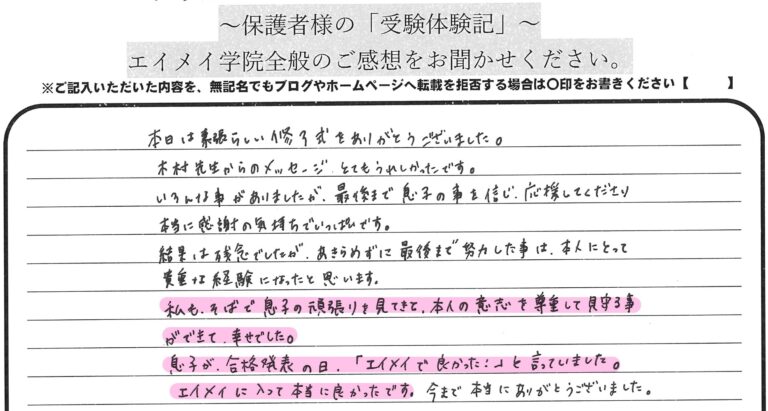 ～保護者様の「受験体験記」～
エイメイ学院全般のご感想をお聞かせください。
※ご記入いただいた内容を、無記名でもブログやホームページへ転載を拒否する場合は〇印をお書きください【　　】
本日は素晴らしい修了式をありがとうございました。
木村先生からのメッセージ、とてもうれしかったです。
いろんな事がありましたが、最後まで息子の事を信じ、応援してくださり
本当に感謝の気持ちでいっぱいです。
結果は残念でしたが、あきらめずに最後まで努力した事は、本人にとって
貴重な経験になったと思います。
私も、そばで息子の頑張りを見てきて、本人の意志を尊重して見守る事
ができて、幸せでした。
息子が、合格発表の日、「エイメイで良かった!」と言っていました。
エイメイに入って本当に良かったです。今まで本当にありがとうございました。